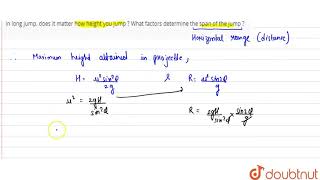 In long jump, does it matter how height you jump ? What factors determine the span of the jump ?
Horizontal range (distance)
∴ Maximum height attained in projectile,
H = u² sin²θ / 2g & R = u² sin2θ / g
u² = 2gH / sin²θ
R = 2gH / sin²θ × sin2θ / g
doubtnut